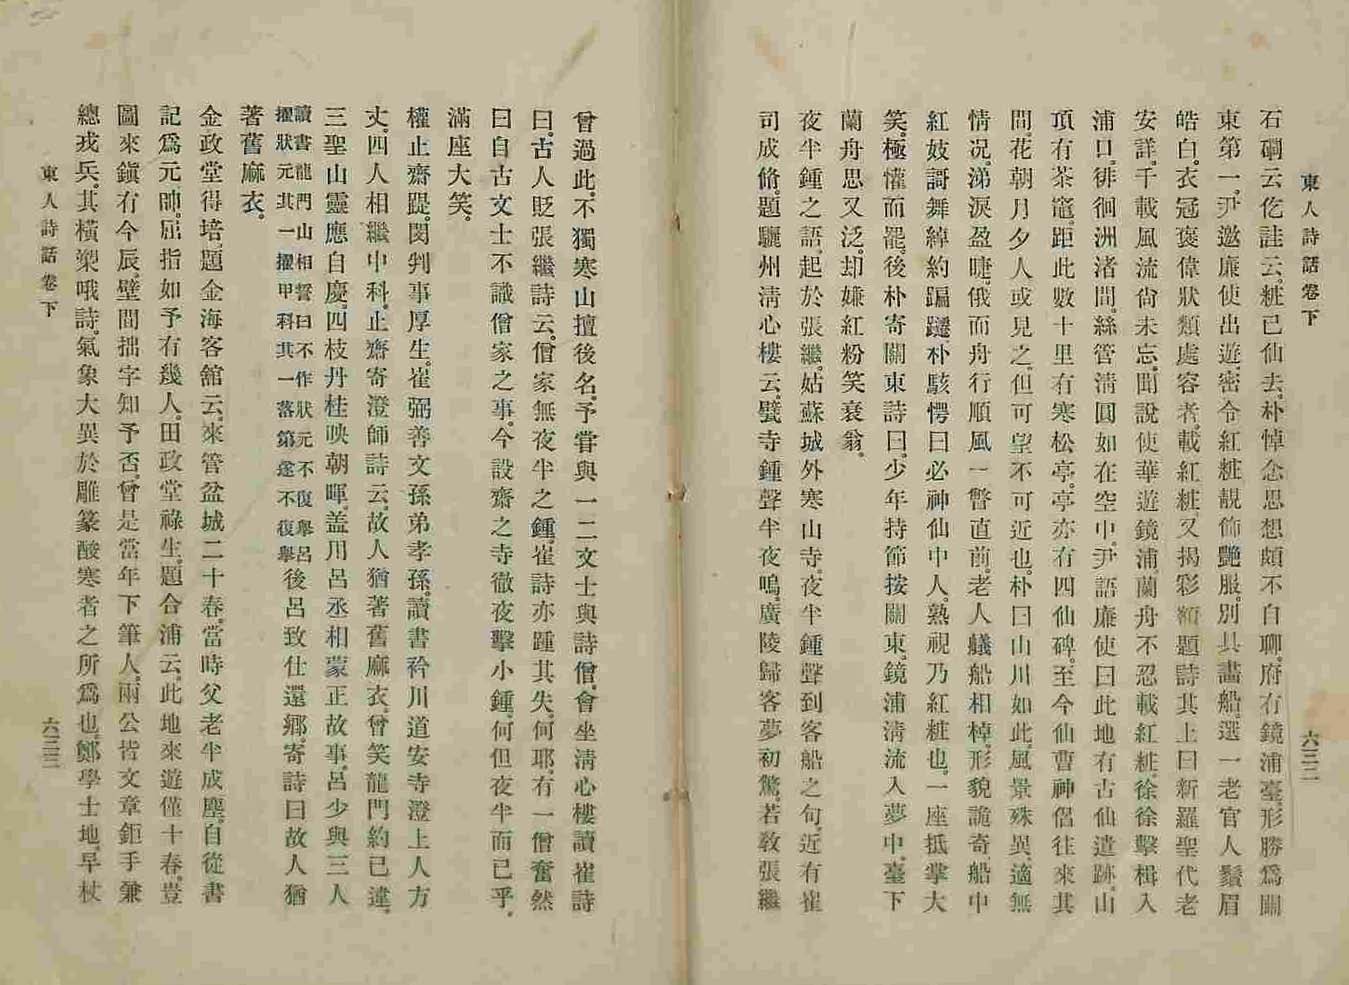 東人詩話卷下
六三二
石磵云佺詿云。粧已仙去。朴悼念思想頗不自聊。府有鏡浦臺。形勝爲關
東第一。尹邀廉使出遊。密令紅粧靚飾艷服。別具畫船。選一老官人鬚眉
皓白。衣冠褒偉狀類處容者。載紅粧。又揭彩額題詩其上曰新羅聖代老
安詳。千載風流尙未忘。聞說使華遊鏡浦。蘭舟不忍載紅粧。徐徐擊楫入
浦口。徘徊洲渚間。絲管淸圓如在空中。尹語廉使曰此地有古仙遺跡。山
頂有茶竈。距此數十里有寒松亭。亭亦有四仙碑。至今仙曹神侶往來其
間。花朝月夕人或見之。但可望不可近也。朴曰山川如此。風景殊異。適無
情况。涕淚盈睫。俄而舟行順風一瞥直前。老人艤船相棹。形貌詭奇船中
紅妓謌舞綽約蹁躚朴駭愕曰必神仙中人。熟視乃紅粧也。一座抵掌大
笑。極懽而罷。後朴寄關東詩曰。少年持節按關東。鏡浦淸流入夢中。臺下
蘭舟思又泛。却嫌紅粉笑衰翁。
夜半鍾之語起於張繼。姑蘇城外寒山寺。夜半鍾聲到客船之句。近有崔
司成脩。題驪州淸心樓云。甓寺鍾聲半夜鳴。廣陵歸客夢初驚。若敎張繼
曾過此。不獨寒山擅後名。予嘗與一二文士與詩僧。會坐淸心樓讀崔詩
曰。古人貶張繼詩云。僧家無夜半之鍾。崔詩亦踵其失。何耶。有一僧奮然
曰自古文士不識僧家之事。今設齋之寺徹夜擊小鍾。何但夜半而已乎。
滿座大笑。
權止齋踶。閔判事厚生。崔弼善文孫弟孝孫。讀書衿川道安寺澄上人方
丈。四人相繼中科。止齋寄澄師詩云。故人猶著舊麻衣。曾笑龍門約已違。
三聖山靈應自慶。四枝丹桂映朝暉。盖用呂丞相蒙正故事。呂少與三人
讀書龍門山相誓曰不作狀元不復擧呂
擢狀元其一擢甲科其一落第遂不復擧後呂致仕還鄕。寄詩曰故人猶
著舊麻衣。
金政堂得培。題金海客舘云。來管盆城二十春。當時父老半成塵。自從書
記爲元帥。屈指如予有幾人。田政堂祿生。題合浦云。此地來遊僅十春。豈
圖來鎭有今辰。壁間拙字知予否。曾是當年下筆人。兩公皆文章鉅手兼
總戎兵。其橫槊哦詩。氣象大異於雕篆酸寒者之所爲也。鄭學士地。早杖
東人詩話卷下
六三三